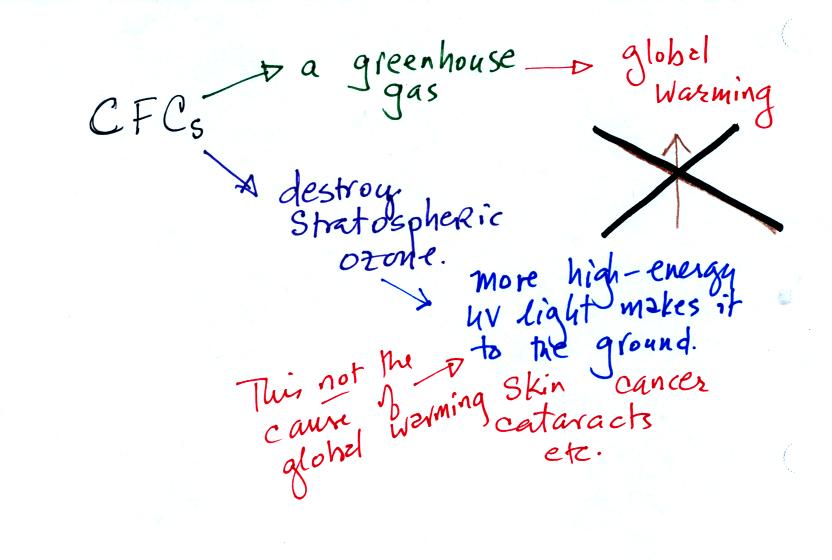 CFCs
a greenhouse
gas
global
warming
destroy
stratospheric
ozone.
more high-energy
UV light makes it
to the ground.
This not the
cause of
global warming
skin cancer
cataracts
etc.